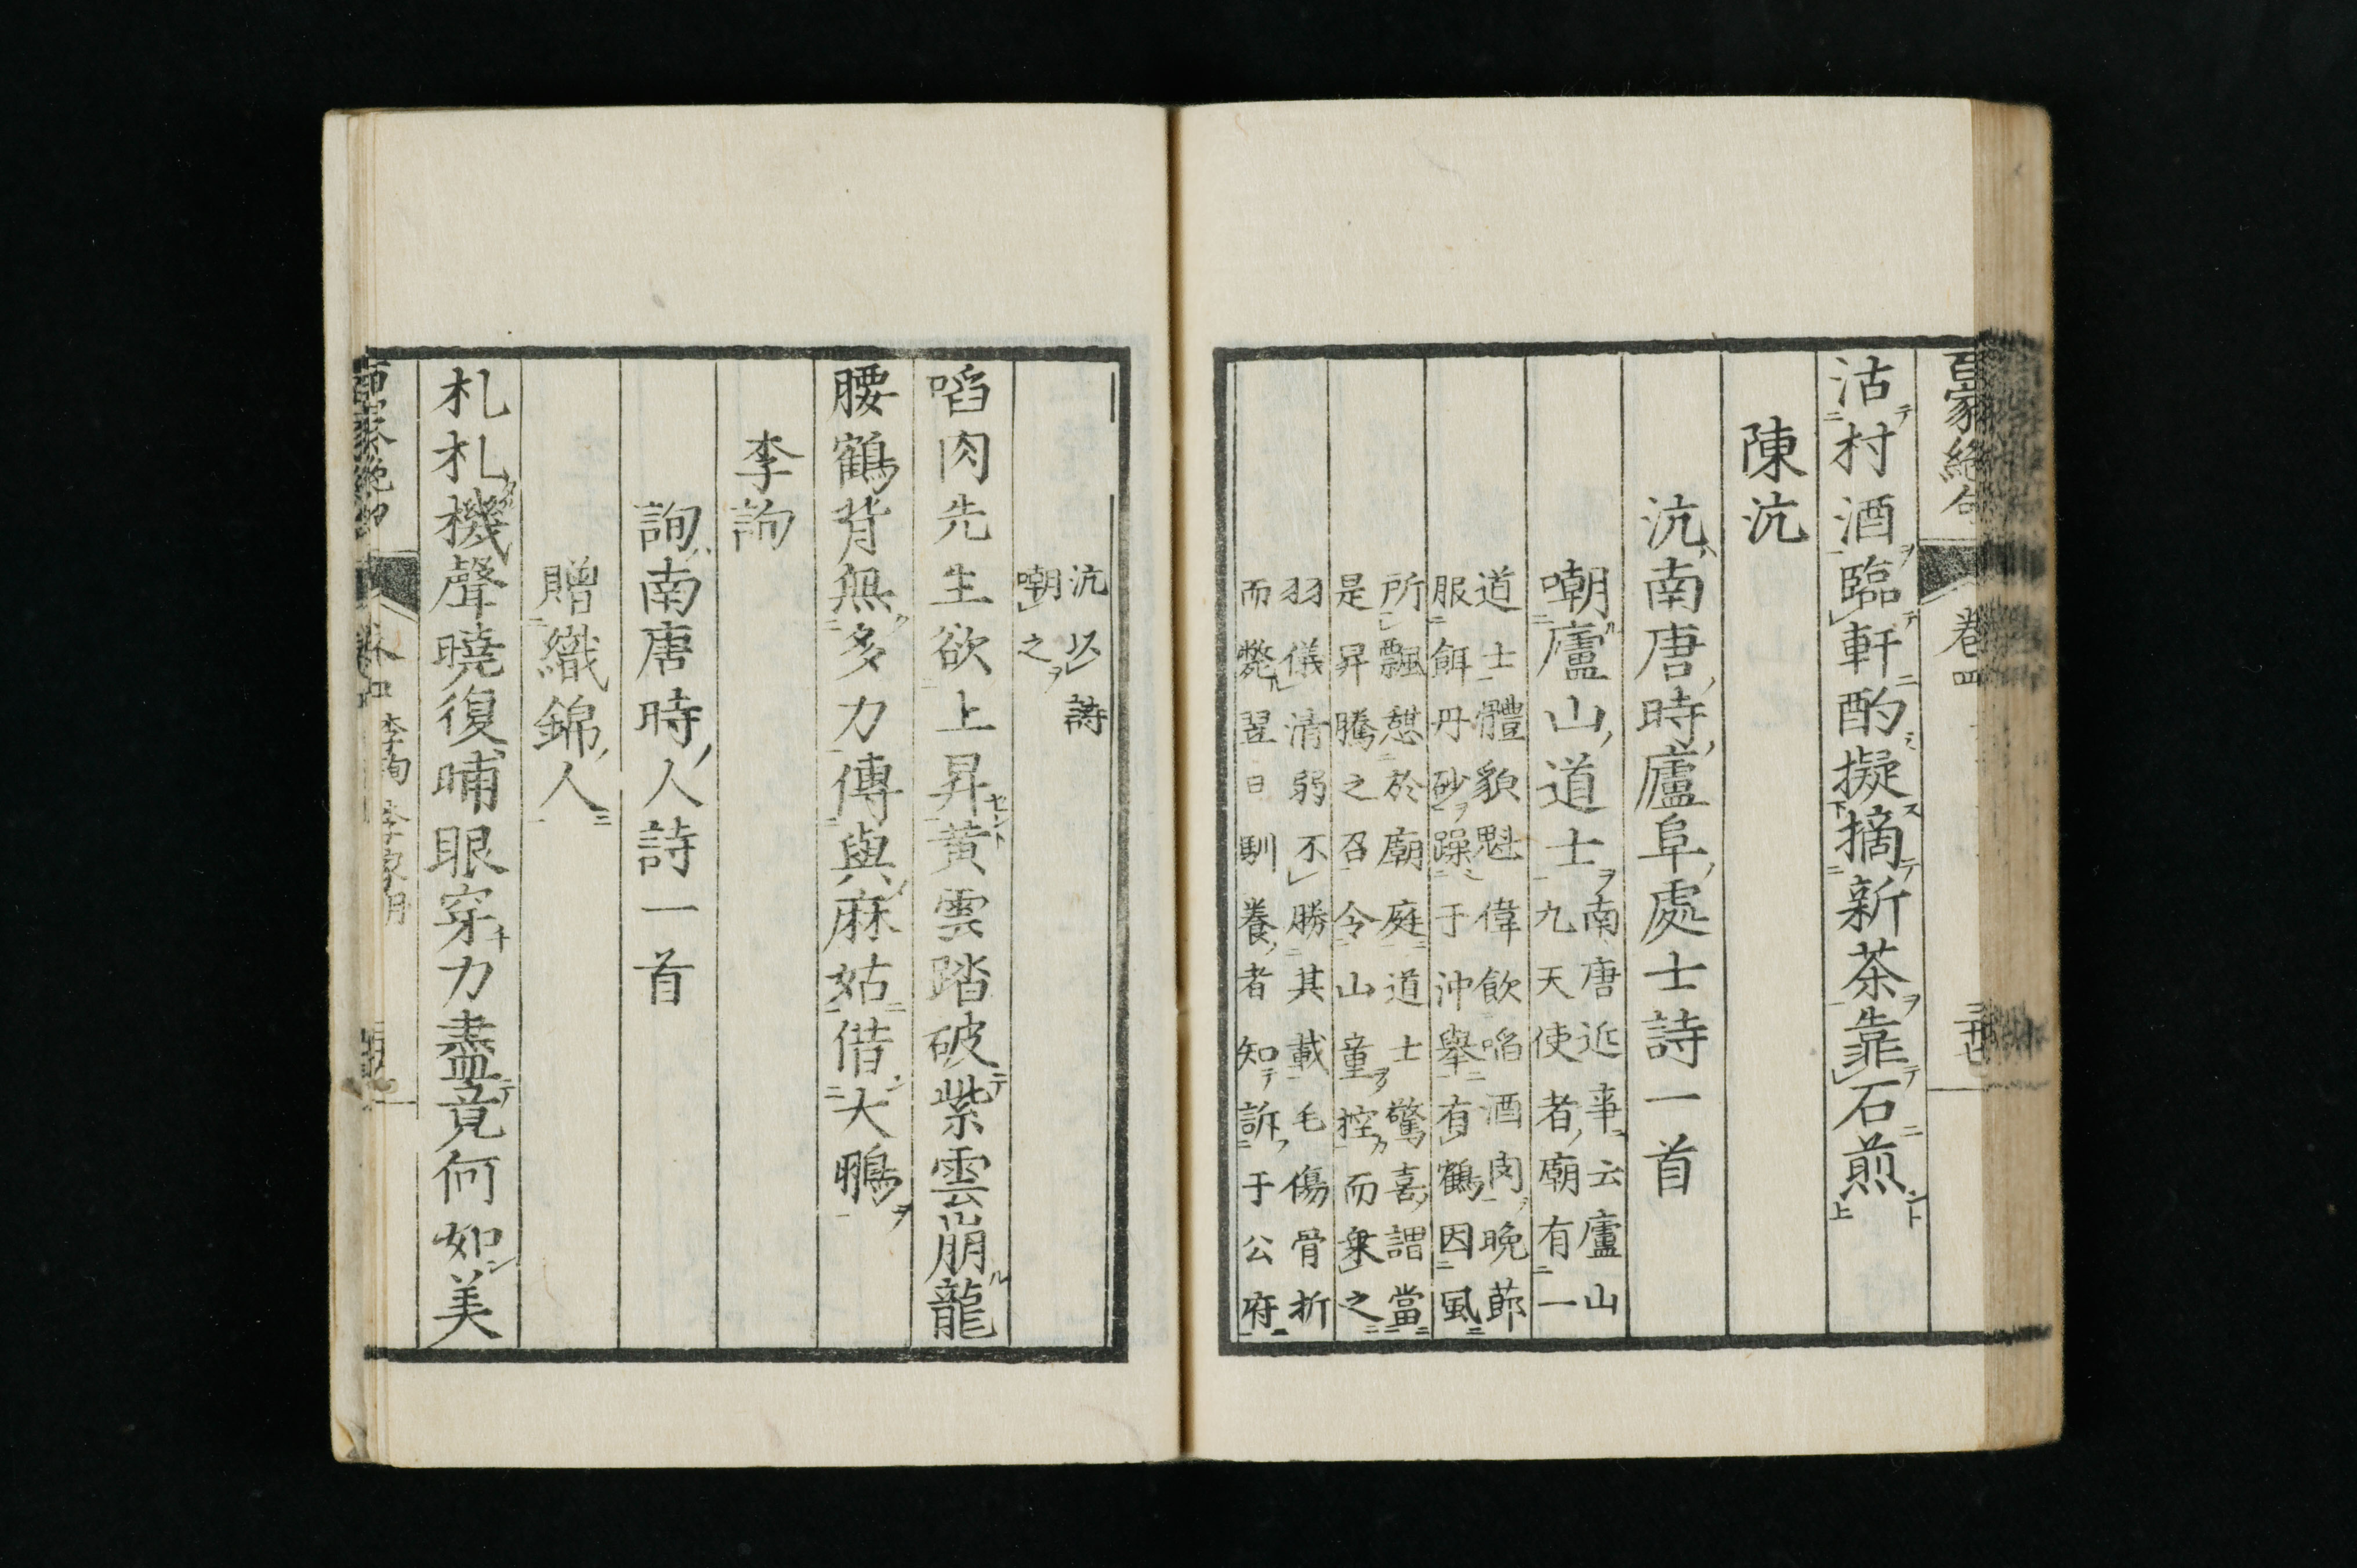 百家絶句 卷四
沽村酒臨軒酌擬摘新茶靠石煎
陳沆
沆南唐時廬阜處士詩一首
嘲廬山道士南唐近事云廬山
九天使者廟有一
道士體貌魁偉飲啗酒肉晚節
服餌丹砂躁于沖舉有鶴因風
所飄憇於廟庭道士驚喜謂當
是昇騰之召令山童控而乗之
羽儀清弱不勝其載毛傷骨折
而斃翌日馴養者知訴于公府
沆以詩
嘲之
啗肉先生欲上昇黃雲踏破紫雲崩龍
腰鶴背無多力傳與麻姑借大鵬
李詢
詢南唐時人詩一首
贈織錦人
札札機聲曉復晡眼穿力盡竟何如美
李詢